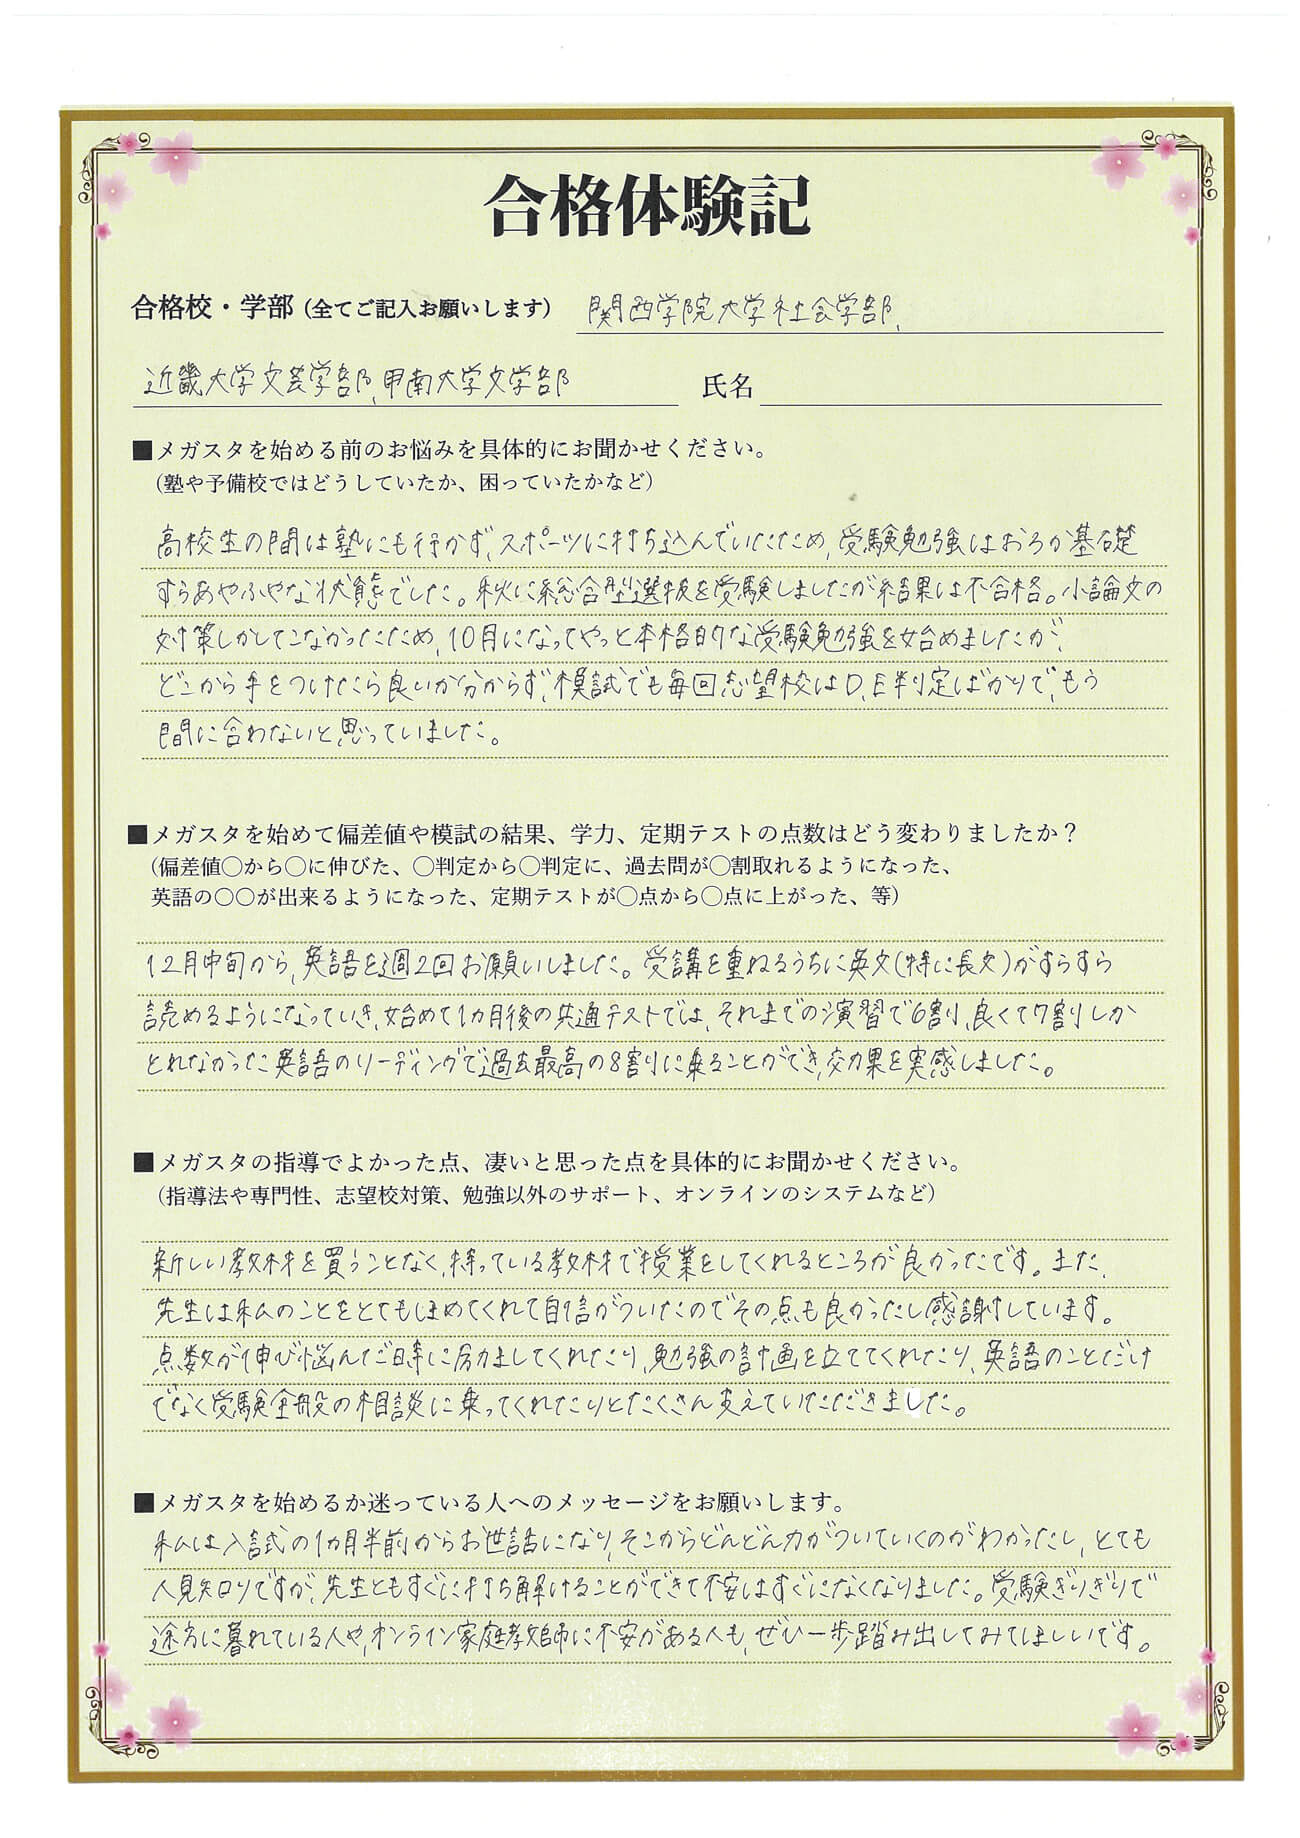 合格体験記
合格校・学部(全てご記入お願いします) 関西学院大学社会学部、
近畿大学文芸学部、甲南大学文学部 氏名
■メガスタを始める前のお悩みを具体的にお聞かせください。
(塾や予備校ではどうしていたか、困っていたかなど)
高校生の間は塾にも行かず、スポーツに打ち込んでいたため、受験勉強はおろか基礎
すらあやふやな状態でした。秋に総合型選抜を受験しましたが結果は不合格。小論文の
対策しかしてこなかったため、10月になってやっと本格的な受験勉強を始めましたが、
どこから手をつけたら良いか分からず、模試でも毎回志望校はD、E判定ばかりで、もう
間に合わないと思っていました。
■メガスタを始めて偏差値や模試の結果、学力、定期テストの点数はどう変わりましたか？
(偏差値〇から〇に伸びた、〇判定から〇判定に、過去問が〇割取れるようになった、
英語の〇〇が出来るようになった、定期テストが〇点から〇点に上がった、等)
12月中旬から、英語を週2回お願いしました。受講を重ねるうちに英文(特に長文)がすらすら
読めるようになっていき、始めて1カ月後の共通テストでは、それまでの演習で6割、良くて7割しか
とれなかった英語のリーディングで過去最高の8割に乗ることができ、効果を実感しました。
■メガスタの指導でよかった点、凄いと思った点を具体的にお聞かせください。
(指導法や専門性、志望校対策、勉強以外のサポート、オンラインのシステムなど)
新しい教材を買うことなく、持っている教材で授業をしてくれるところが良かったです。また、
先生は私のことをとてもほめてくれて自信がついたのでその点も良かったし感謝しています。
点数が伸び悩んだ時に励ましてくれたり、勉強の計画を立ててくれたり、英語のことだけ
でなく受験全般の相談に乗ってくれたりとたくさん支えていただきました。
■メガスタを始めるか迷っている人へのメッセージをお願いします。
私は入試の1カ月半前からお世話になり、そこからどんどん力がついていくのがわかったし、とても
人見知りですが、先生ともすぐに打ち解けることができて不安はすぐになくなりました。受験ぎりぎりで
途方に暮れている人や、オンライン家庭教師に不安がある人も、ぜひ一歩踏み出してみてほしいです。